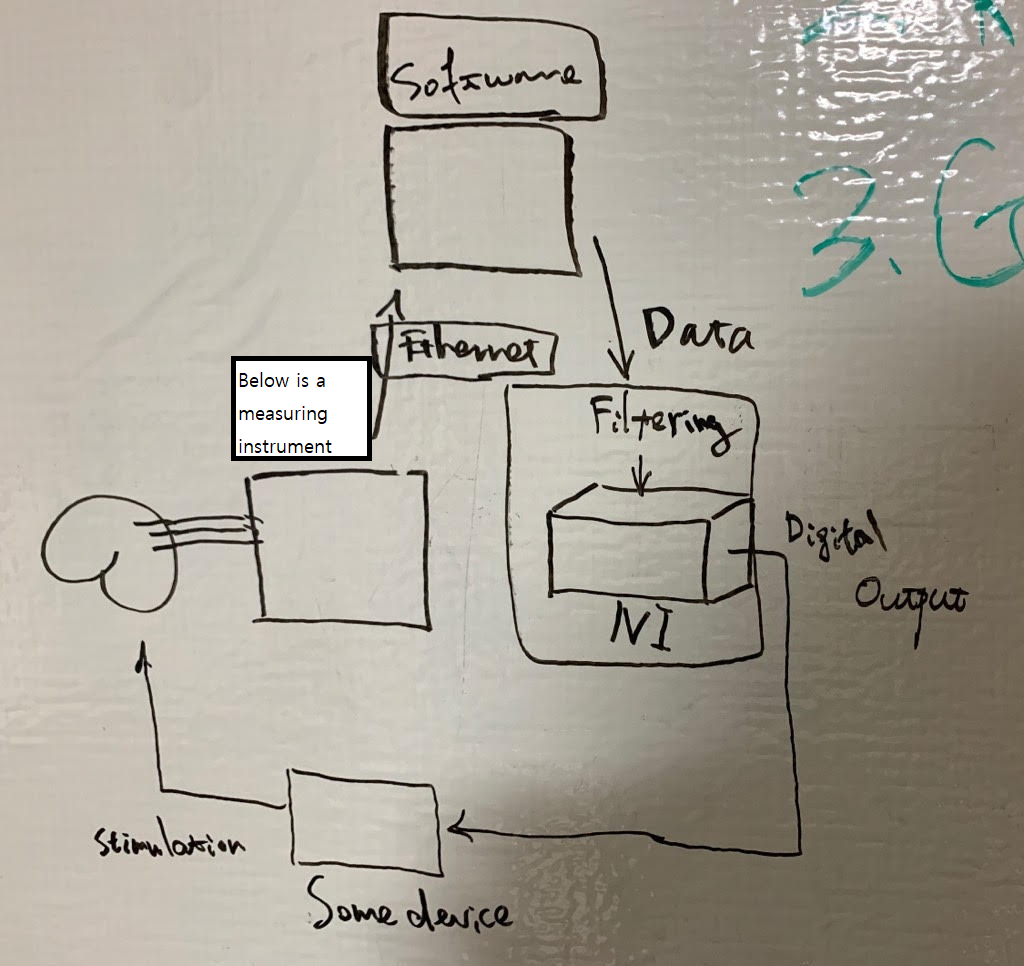 Software
Ethernet
Data
Below is a
measuring
instrument
Filtering
NI
Digital
Output
Stimulation
Some device
3. G